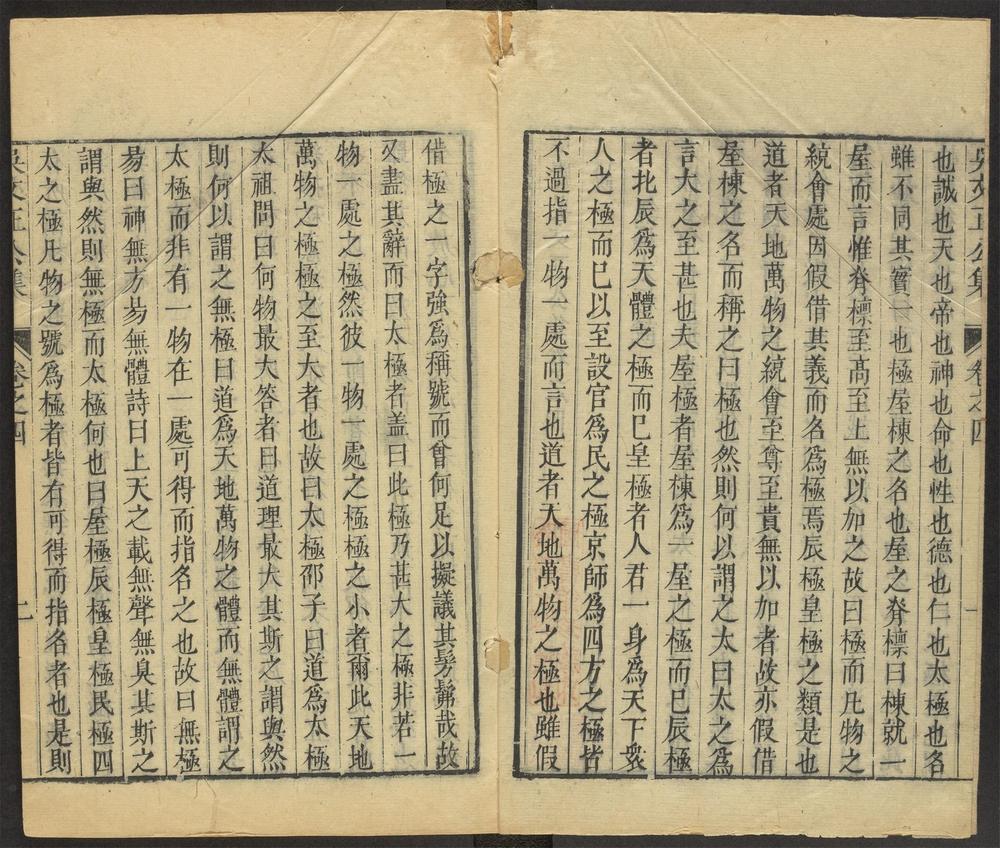 吳文正公集
卷之四
一
也誠也天也帝也神也命也性也德也仁也太極也名
雖不同其實一也極屋棟之名也屋之脊檩曰棟就一
屋而言惟脊檩至髙至上無以加之故曰極而凡物之
統會處因假借其義而名爲極焉辰極皇極之類是也
道者天地萬物之統會至尊至貴無以加者故亦假借
屋棟之名而稱之曰極也然則何以謂之太曰太之爲
言大之至甚也夫屋極者屋棟爲一屋之極而已辰極
者北辰爲天體之極而已皇極者人君一身爲天下衆
人之極而已以至設官爲民之極京師爲四方之極皆
不過指一物一處而言也道者天地萬物之極也雖假
借極之一字強爲稱號而曾何足以擬議其髣髴哉故
又盡其辭而曰太極者盖曰此極乃甚大之極非若一
物一處之極然彼一物一處之極極之小者爾此天地
萬物之極極之至大者也故曰太極邵子曰道爲太極
太祖問曰何物最大答者曰道理最大其斯之謂與然
則何以謂之無極曰道爲天地萬物之體而無體謂之
太極而非有一物在一處可得而指名之也故曰無極
昜曰神無方昜無體詩曰上天之載無聲無臭其斯之
謂與然則無極而太極何也曰屋極辰極皇極民極四
太之極凡物之號爲極者皆有可得而指名者也是則
吳文正公集
卷之四
二